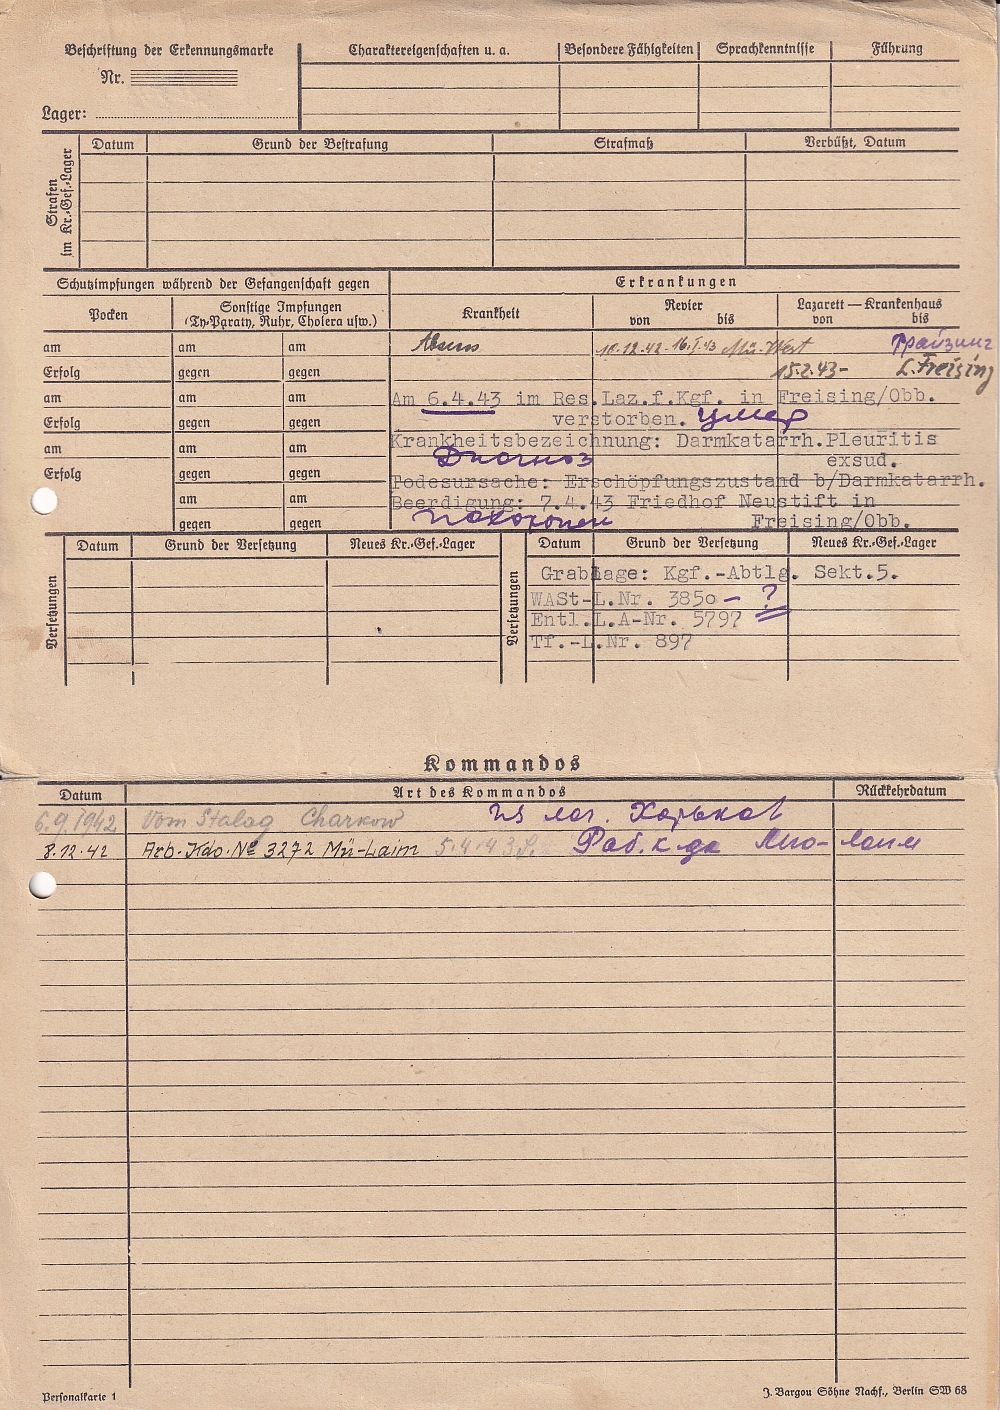 Beschriftung der Erkennungsmarke
Nr.
Lager:
Charaktereigenschaften u. a. Besondere Fähigkeiten Sprachkenntnisse Führung
Strafen im Kr.-Gef.-Lager
Datum Grund der Bestrafung Strafmaß Verbüßt, Datum
Schutzimpfungen während der Gefangenschaft gegen Erkrankungen
Pocken Sonstige Impfungen Krankheit Revier Lazarett — Krankenhaus
(Ty-Paraty, Ruhr, Cholera usw.) von bis von bis
am am am 10.12.42-16.I.43 Mü-West Фрайзинг
Erfolg gegen gegen 15.2.43- L. Freising
am am am Am 6.4.43 im Res.Laz.f.Kgf. in Freising/Obb.
Erfolg gegen gegen verstorben. умер
am am am Krankheitsbezeichnung: Darmkatarrh.Pleuritis
Erfolg gegen gegen Диагноз exsud.
Todesursache: Erschöpfungszustand b/Darmkatarrh.
am am Beerdigung: 7.4.43 Friedhof Neustift in
gegen gegen похоронен Freising/Obb.
Versetzungen
Datum Grund der Versetzung Neues Kr.-Gef.-Lager
Versetzungen
Datum Grund der Versetzung Neues Kr.-Gef.-Lager
Grablage: Kgf.-Abtlg. Sekt.5.
WASt-L.Nr. 3850 — ?
Entl.L.A-Nr. 5797
Tf.-L.Nr. 897
Kommandos
Datum Art des Kommandos Rückkehrdatum
6.9.1942 Vom Stalag Charkow из лаг. Харьков
8.12.42 Arb.Kdo.№ 3272 Mü-Laim 5.4.43 Раб. к-да Мю-Лаим
Personalkarte 1
J. Bargou Söhne Nachf., Berlin SW 68